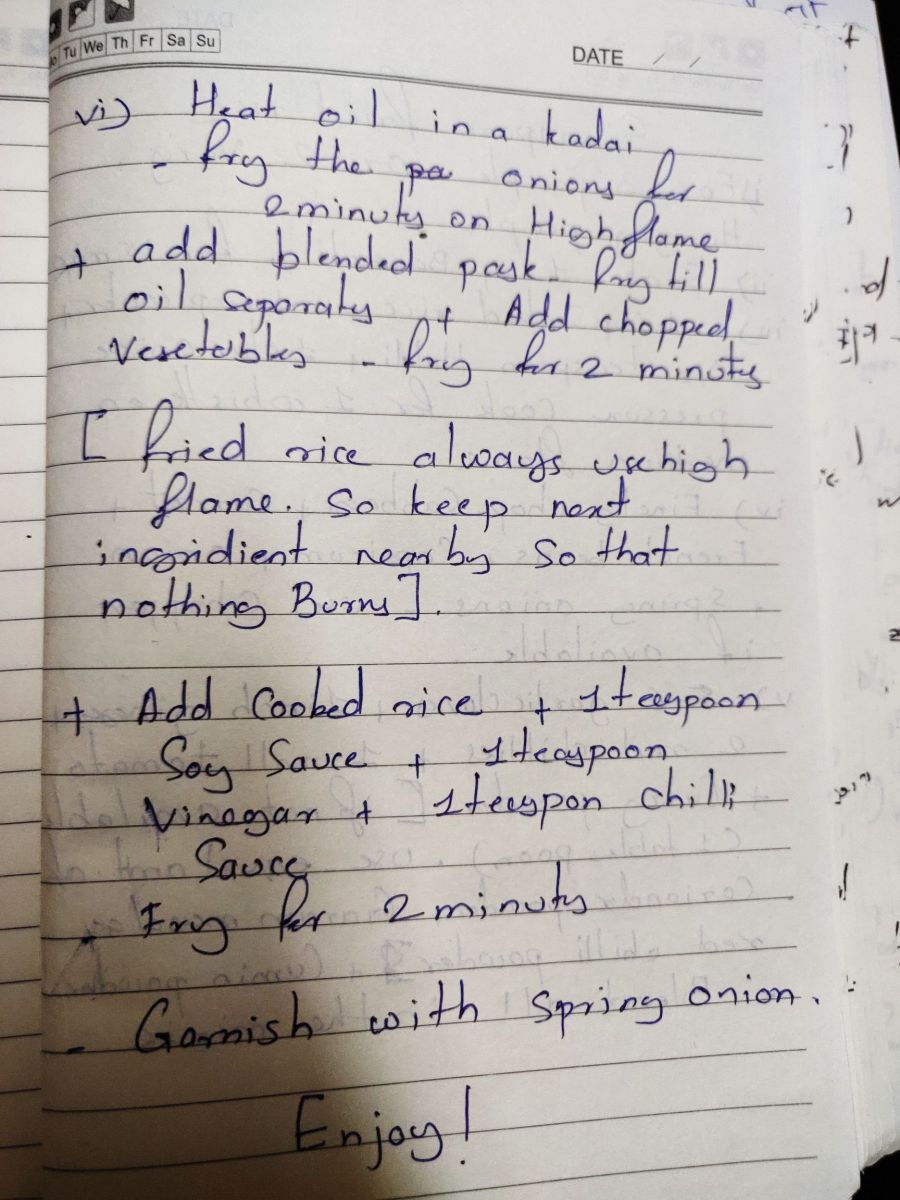 Tu We Th Fr Sa Su
DATE / /
vi) Heat oil in a kadai
- fry the onions for
2 minutes on High flame
+ add blended paste - fry till
oil separates + Add chopped
Vegetables - fry for 2 minutes
[ fried rice always use high
flame. So keep next
ingridient near by So that
nothing Burns ].
+ Add Cooked rice + 1 teaspoon
Soy Sauce + 1 teaspoon
Vinegar + 1 teespon chilli
Sauce
- Fry for 2 minutes
- Garnish with Spring onion.
Enjoy!